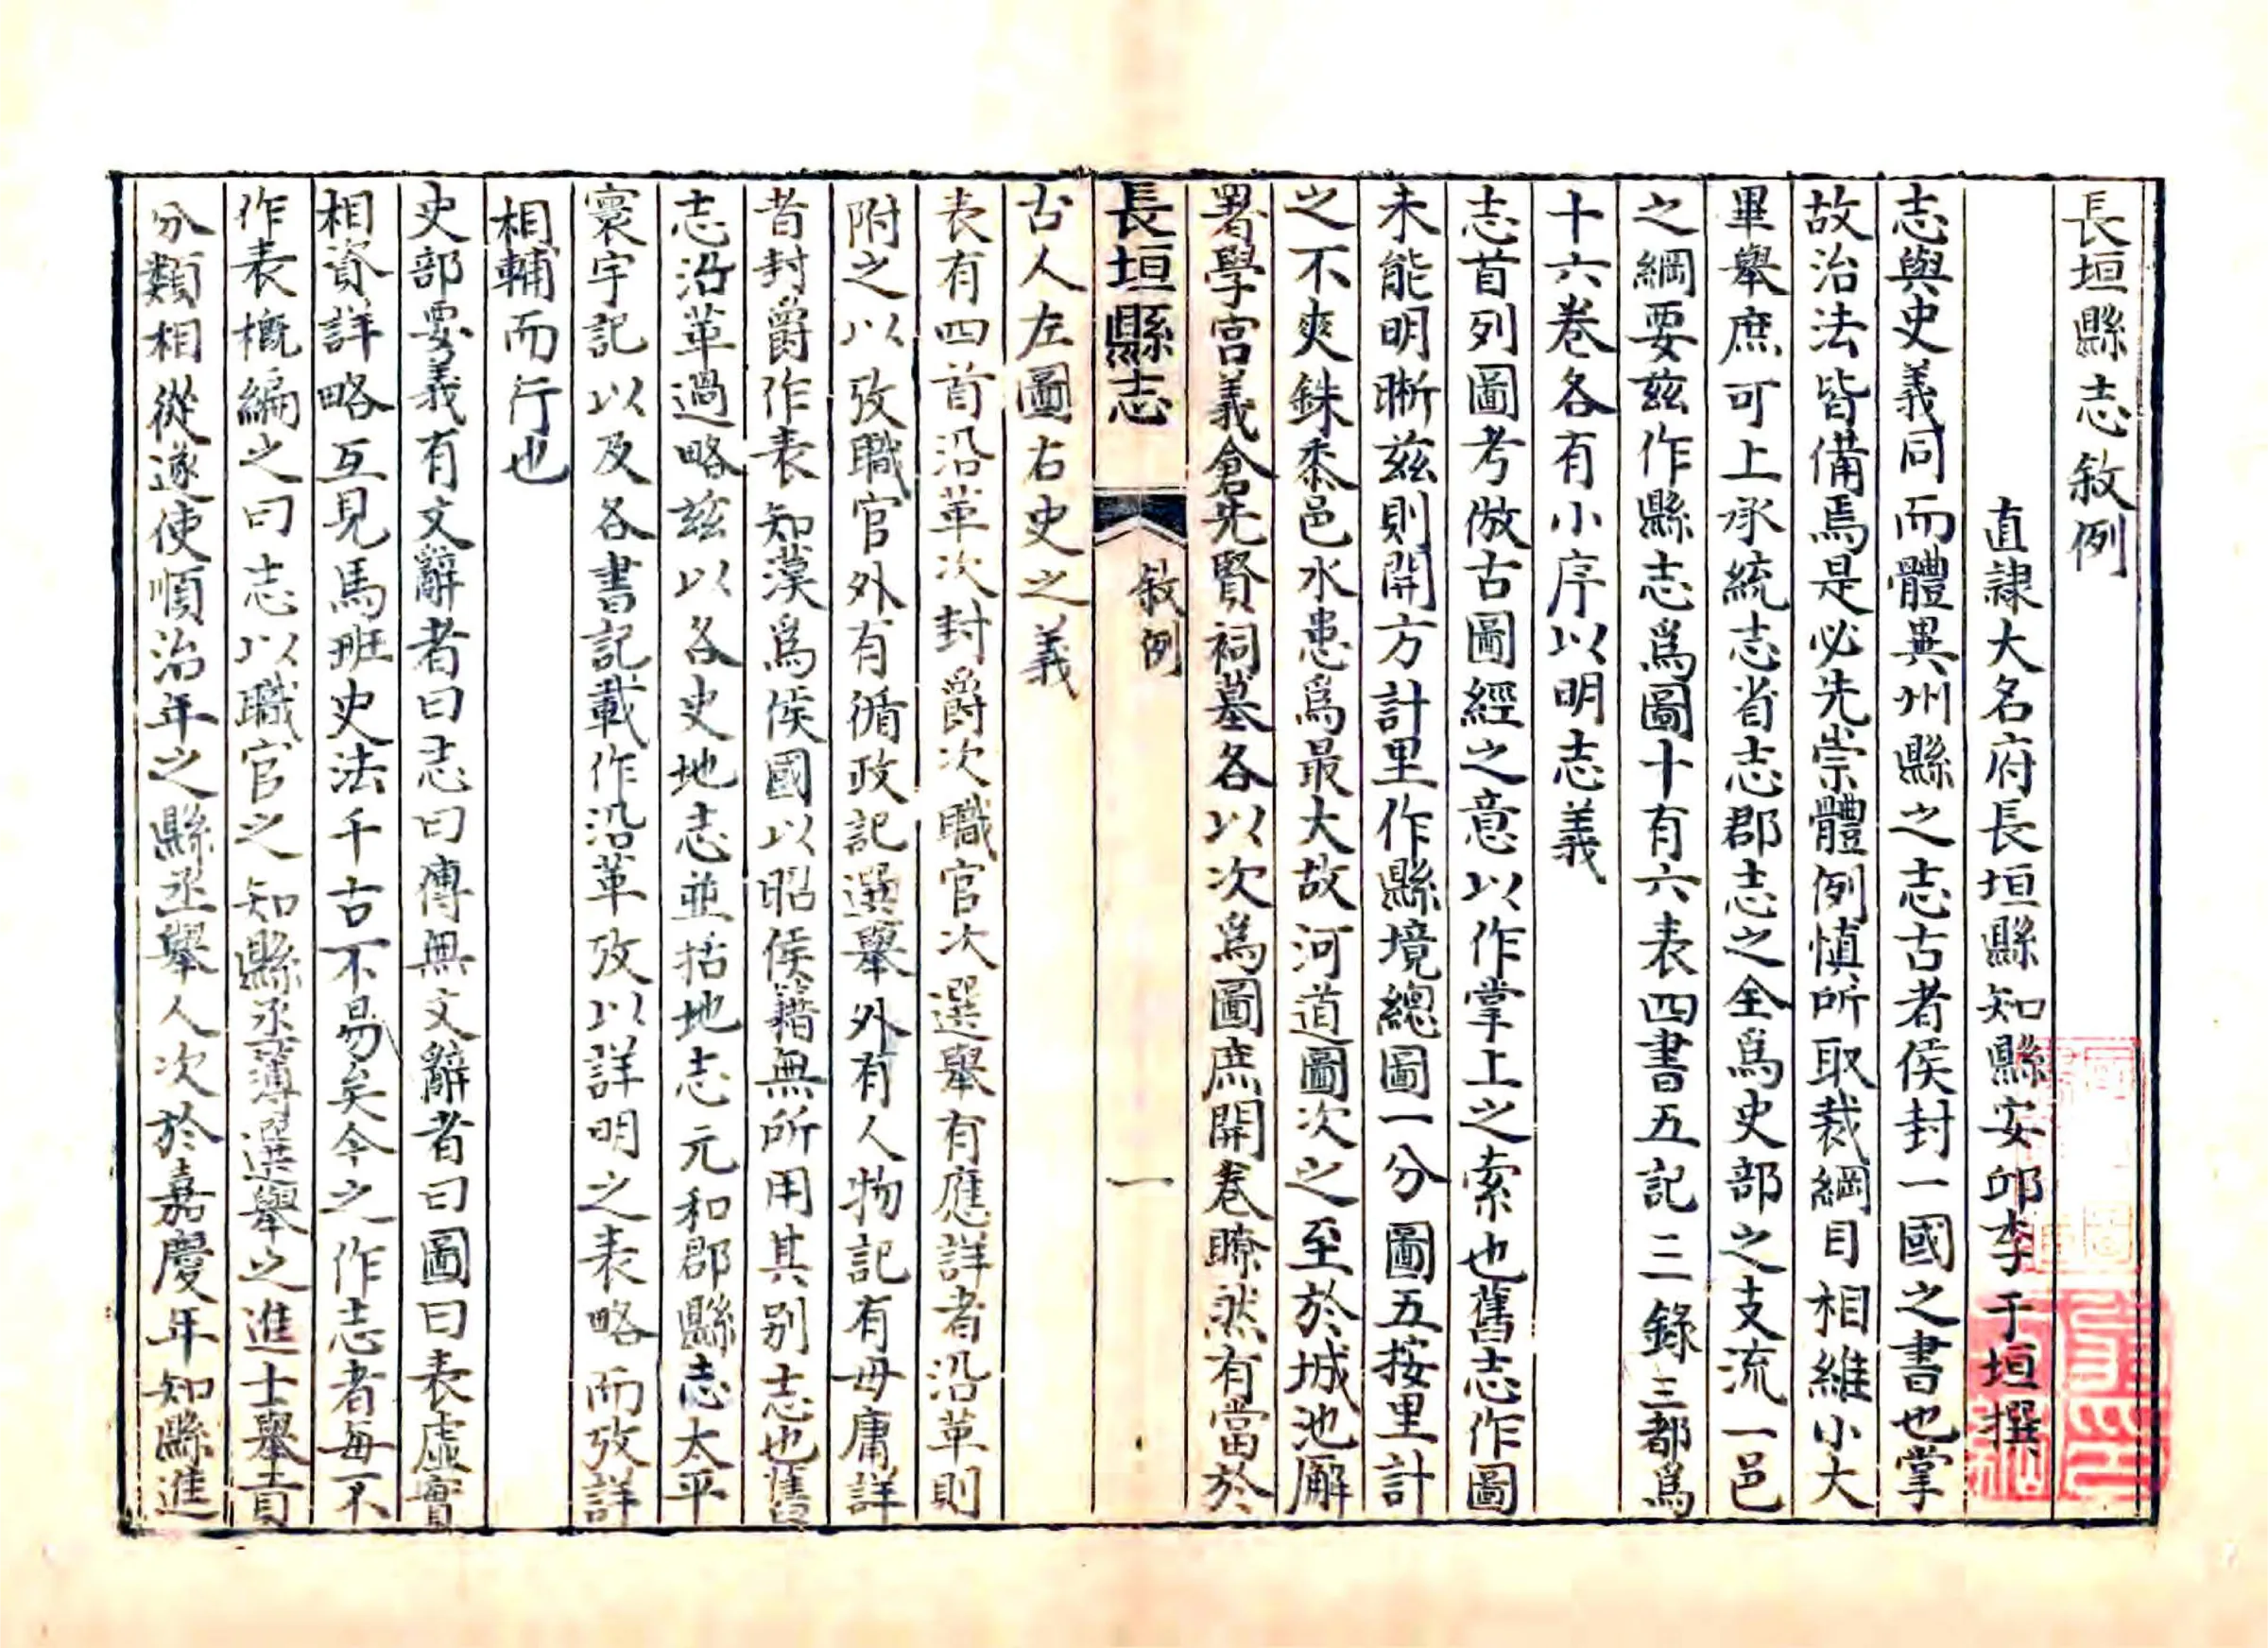 長垣縣志敘例
直隸大名府長垣縣知縣安邱李于垣撰
志與史義同而體異州縣之志古者侯封一國之書也掌
故治法皆備焉是必先崇體例慎所取裁綱目相維小大
畢舉庶可上承統志省志郡志之全爲史部之支流一邑
之綱要茲作縣志爲圖十有六表四書五記三錄三都爲
十六卷各有小序以明志義
志首列圖考倣古圖經之意以作掌上之索也舊志作圖
未能明晰茲則開方計里作縣境總圖一分圖五按里計
之不爽銖黍邑水患爲最大故河道圖次之至於城池廨
署學宮義倉先賢祠墓各以次爲圖庶開卷瞭然有當於
長垣縣志
敘例
一
古人左圖右史之義
表有四首沿革次封爵次職官次選舉有應詳者沿革則
附之以攷職官外有循政記選舉外有人物記有毋庸詳
者封爵作表知漢爲侯國以昭侯籍無所用其別志也舊
志沿革過略茲以各史地志並括地志元和郡縣志太平
寰宇記以及各書記載作沿革攷以詳明之表略而攷詳
相輔而行也
史部要義有文辭者曰志曰傳無文辭者曰圖曰表虛實
相資詳略互見馬班史法千古不易矣今之作志者每不
作表概編之曰志以職官之知縣丞簿選舉之進士舉貢
分類相從遂使順治年之縣丞舉人次於嘉慶年知縣進